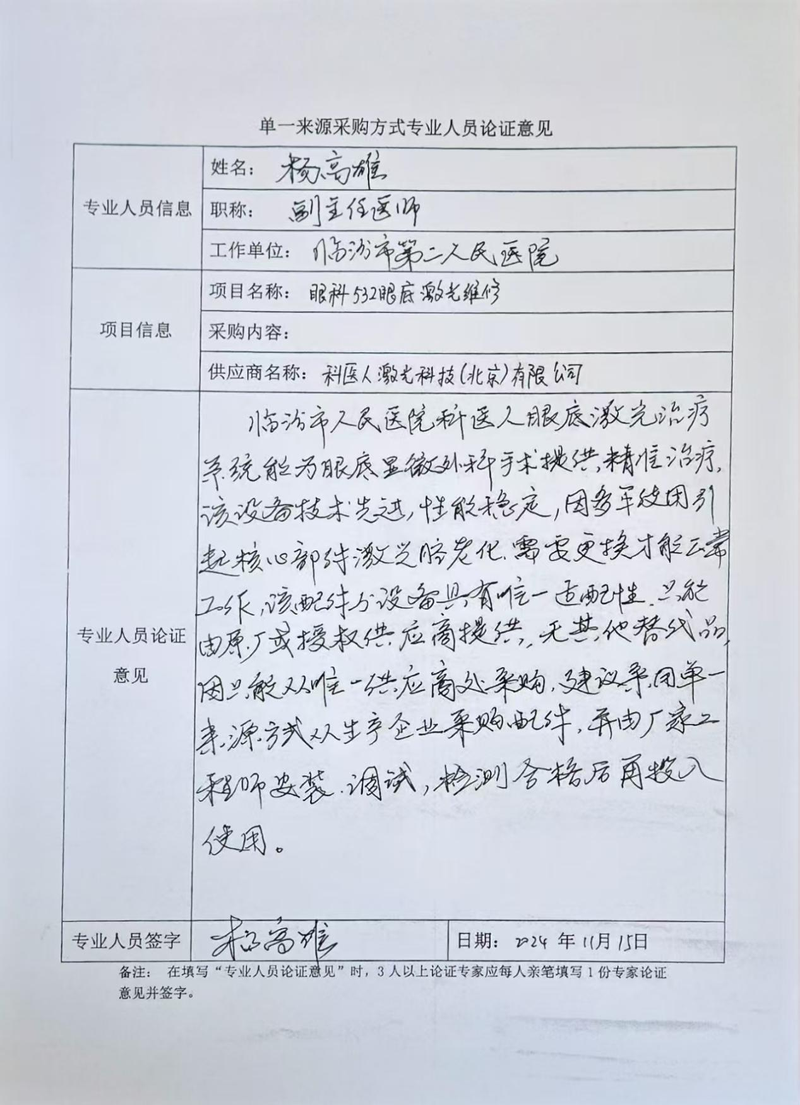 单一来源采购方式专业人员论证意见
专业人员信息
姓名：杨高雄
职称：副主任医师
工作单位：临汾市第二人民医院
项目信息
项目名称：眼科532眼底激光维修
采购内容：
供应商名称：科医人激光科技(北京)有限公司
专业人员论证
意见
临汾市人民医院科医人眼底激光治疗
系统能为眼底显微外科手术提供，精准治疗，
该设备技术先进，性能稳定，因多年使用引
起核心部件激光腔老化、需要更换才能正常
工作，该配件与设备具有唯一适配性、只能
由原厂或授权供应商提供，无其他替代品，
因只能从唯一供应商处采购，建议采用单一
来源方式从生产企业采购配件，并由厂家工
程师安装、调试，检测合格后再投入
使用。
专业人员签字
杨高雄
日期：2024年11月15日
备注：在填写“专业人员论证意见”时，3人以上论证专家应每人亲笔填写1份专家论证
意见并签字。